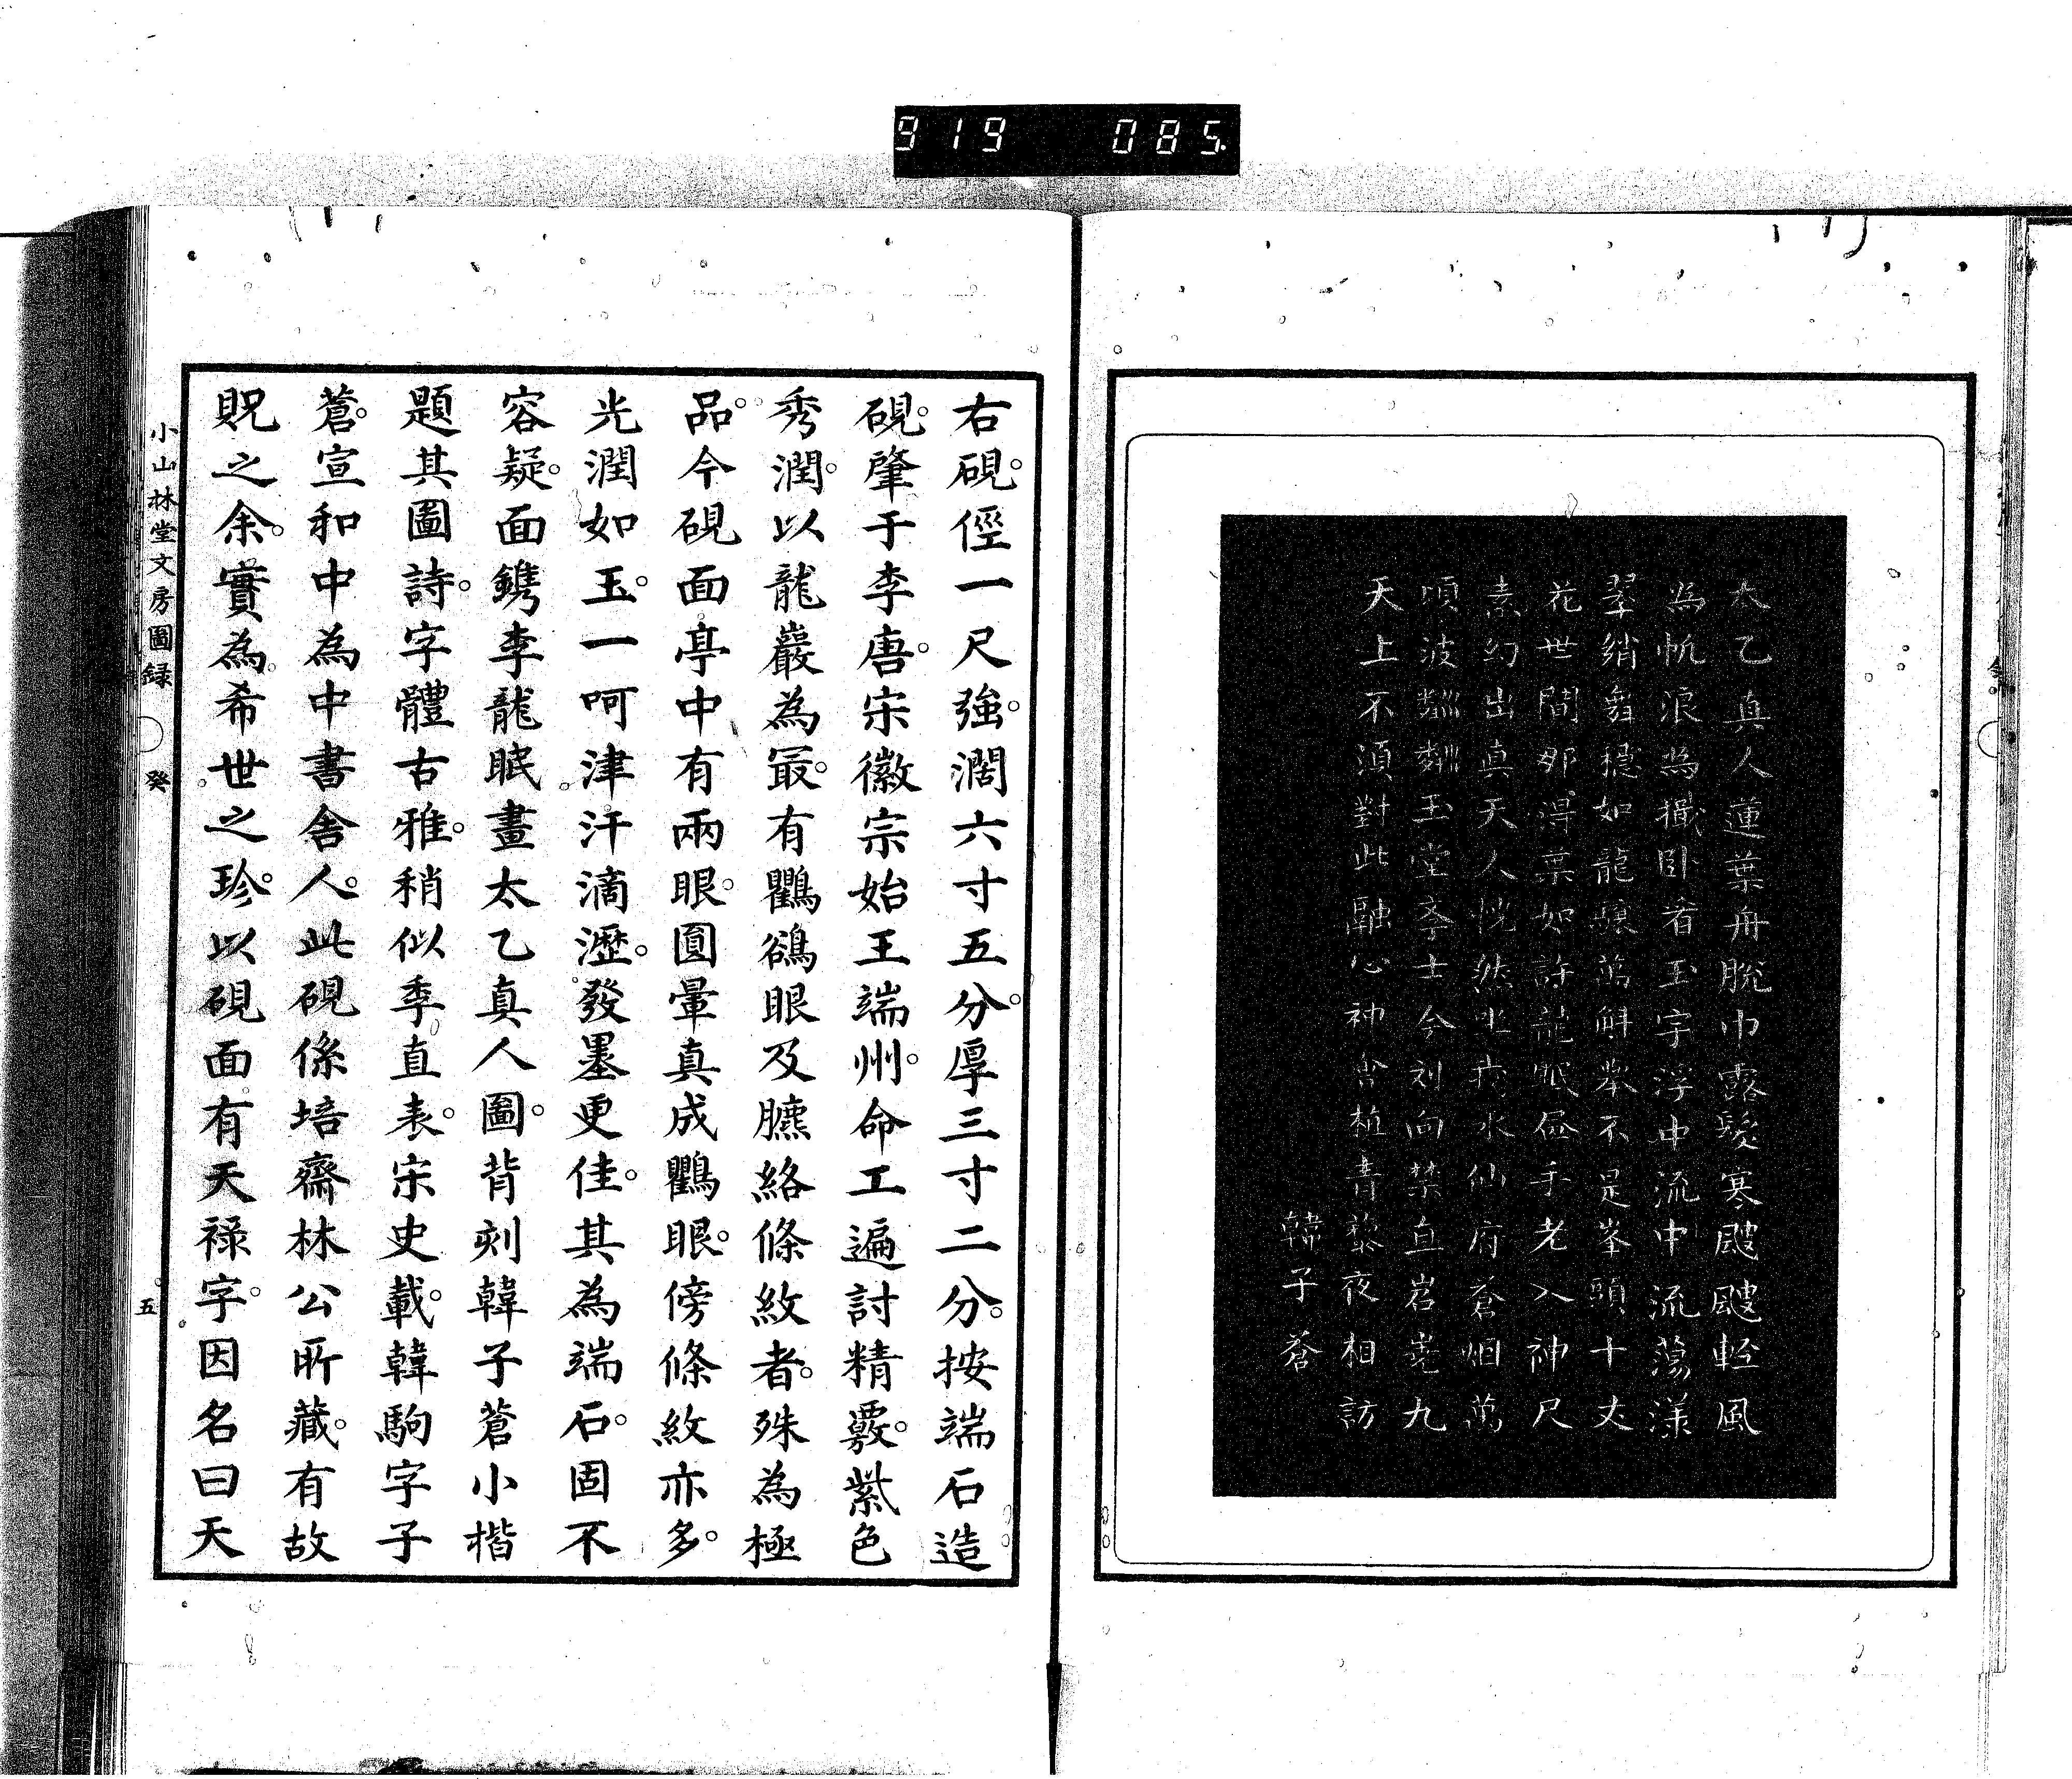 919 085
太乙真人蓮葉舟脫巾露髮寒颼颼輕風
為帆浪為檝卧看玉宇浮中流中流蕩漾
翠綃舞穩如龍驤萬斛舉不是峯頭十丈
花世間那得葉如許龍眠畫手老入神尺
素幻出真天人恍然坐我水仙府蒼烟萬
頃波粼粼玉堂學士今劉向禁直岧嶤九
天上不須對此融心神會植青藜夜相訪
韓子蒼
右硯徑一尺強濶六寸五分厚三寸二分按端石造
硯肇于李唐宋徽宗始王端州命工遍討精覈紫色
秀潤以龍巖為最有鸜鵒眼及臙絡條紋者殊為極
品今硯面亭中有兩眼圓暈真成鸜眼傍條紋亦多
光潤如玉一呵津汗滴瀝發墨更佳其為端石固不
容疑面鐫李龍眠畫太乙真人圖背刻韓子蒼小楷
題其圖詩字體古雅稍似季直表宋史載韓駒字子
蒼宣和中為中書舍人此硯係培齋林公所藏有故
貺之余實為希世之珍以硯面有天禄字因名曰天
小山林堂文房圖録 癸 五